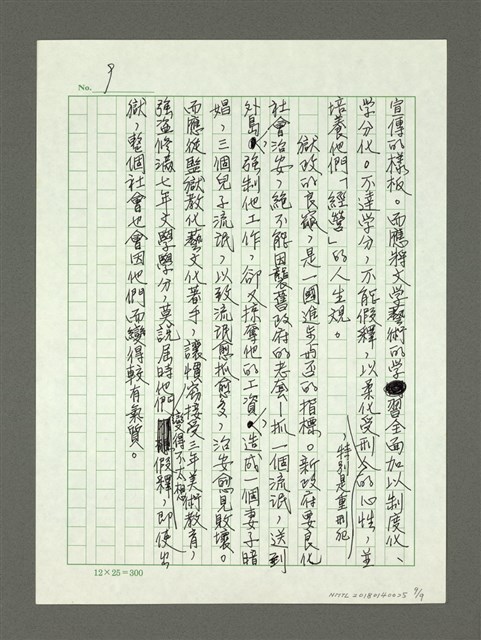 No. 9
宣傳的樣板。而應將文学藝術的学習全面加以制度化、
学分化。不達学分，不能假釋，以柔化受刑人的心性，並
，特別是重刑犯
培養他們「經營」的人生观。
獄政的良窳，是一國進步与否的指標。新政府要良化
社會治安，絕不能因襲舊政府的老套—抓一個流氓，送到
外島，強制他工作，卻又掠奪他的工資，造成一個妻子暗
娼，三個兒子流氓，以致流氓愈抓愈多，治安愈見敗壞。
而應從監獄教化藝文化著手，讓慣窃接受三年美術教育，
強盜修滿七年文學學分，莫說屆時他們變得不太想假釋，即使出
獄，整個社會也會因他們而變得較有氣質。
12×25=300
NMTL 20180140025 9/9